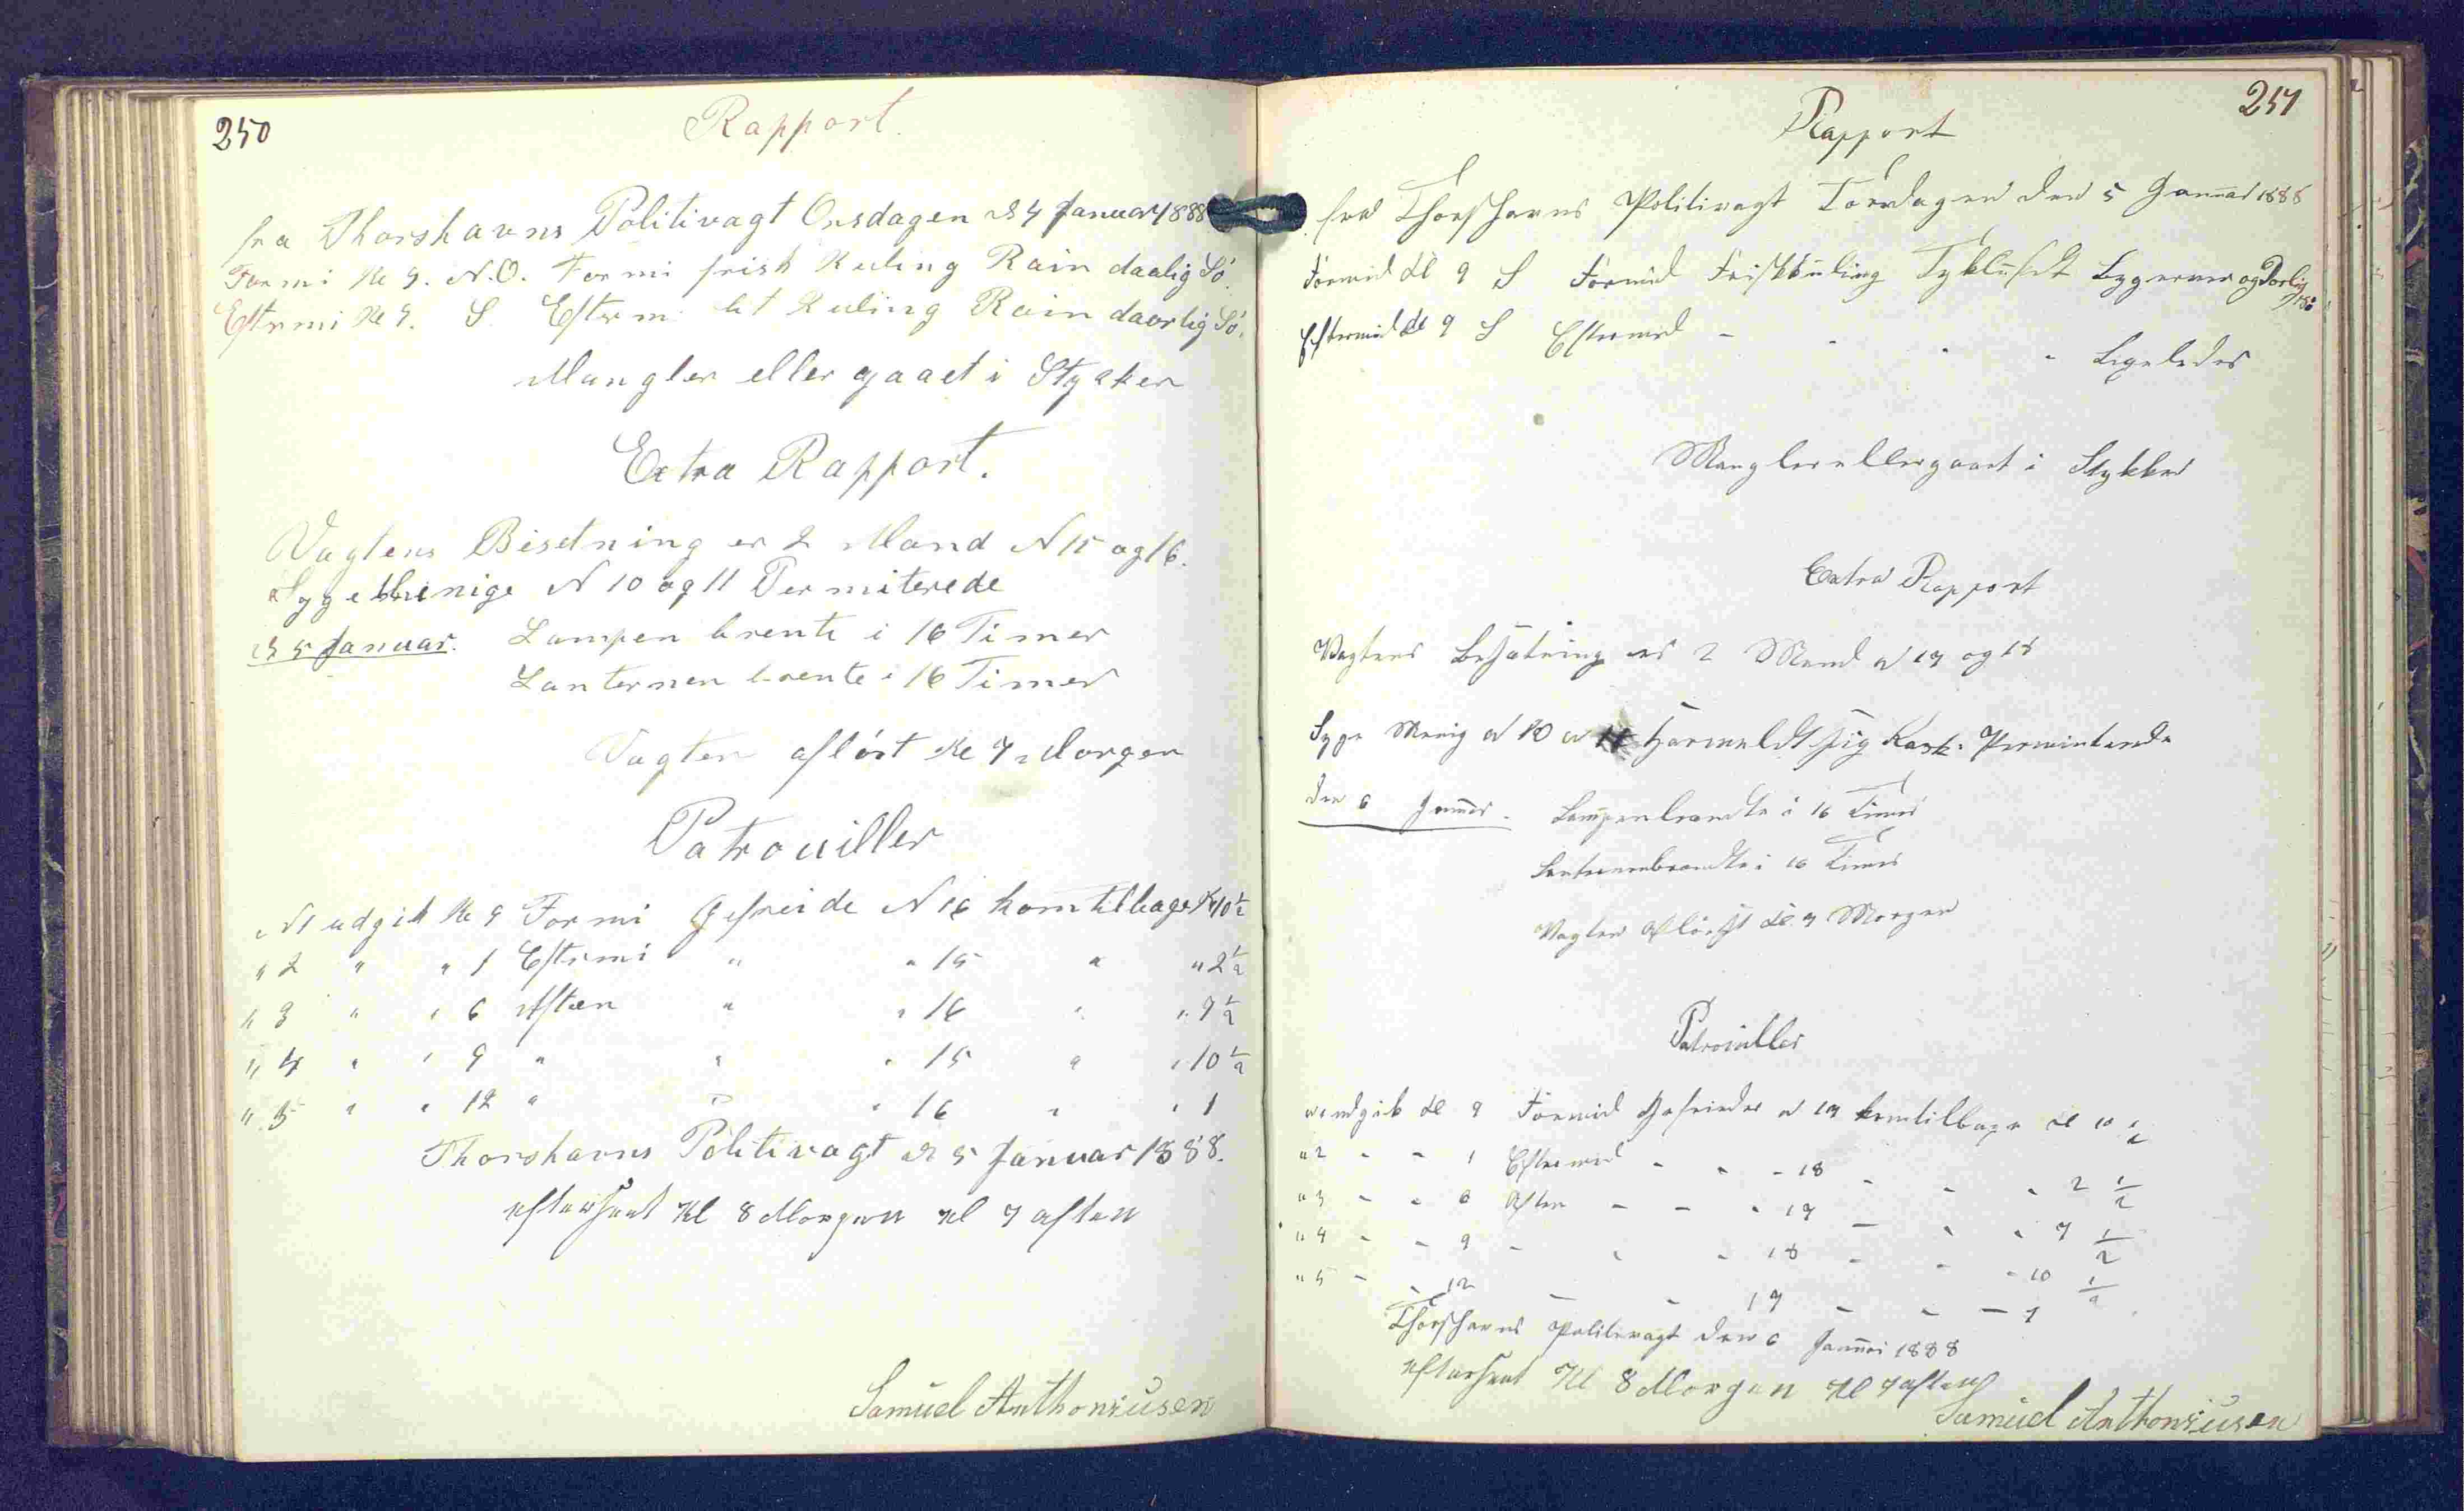 250
Rapport.
fra Thorshavns Politivagt Onsdagen d 4 Januar 1888
Formi Kl 9. N.O. Formi frisk Kuling Rain daalig Sö.
Eftrmi Kl 9. S. Efterm. let Kuling Rain daarlig Sö.
Mangler eller gaaet i Stykker
Extra Rapport.
Vagtens Besetning er 2 Mand N 15 og 16.
Syge Menige N 10 og 11 Permiterede
d 5 Januar. Lampen brente i 16 Timer
Lanternen brente i 16 Timer
Vagten aflöst Kl 9 Morgen
Patrouiller
N 1 udgik Kl 9 Formi Gefreide N 16 kom tilbage Kl 10 1/2
" 2 " " 1 Eftrmi " " 15 " " 2 1/2
" 3 " " 6 Aften " " 16 " " 7 1/2
" 4 " " 9 " " " 15 " " 10 1/2
" 5 " " 12 " " " 16 " " 1
Thorshavns Politivagt d 5 Januar 1888.
efterseet Kl 8 Morgen Kl 7 aften
Samuel Anthoniusen
251
Rapport
fra Thorshavns Politivagt Torsdagen den 5 Januar 1888
Formid Kl 9 S Formid Frisk Kuling Tyk Luft Bygerner og Dorlig Sö
Eftermid Kl 9 S Eftermid - - - - Ligeledes
Mangler eller gaaet i Stykker
Extra Rapport
Vagtens Besætning er 2 Mand N 17 og 18
Syge Menig N 10 N 11 Har meldt sig Rask. Perminterede
den 6 Januar. Lampen brendte i 16 Timer
Lanternen brendte i 16 Timer
Vagten aflöst Kl. 9 Morgen
Patrouiller
N 1 udgik Kl 9 Formid Gefreider N 17 kom tilbage Kl 10 1/2
" 2 - - 1 Eftermid - - - 18 - - - 2 1/2
" 3 - - 6 Aften - - - 17 - - - 7 1/2
" 4 - - 9 - - - 18 - - - 10 1/2
" 5 - - 12 - - 17 - - - 1
Thorshavns Politivagt den 6 Januar 1888
efterseet Kl 8 Morgen Kl 7 aften
Samuel Anthoniusen